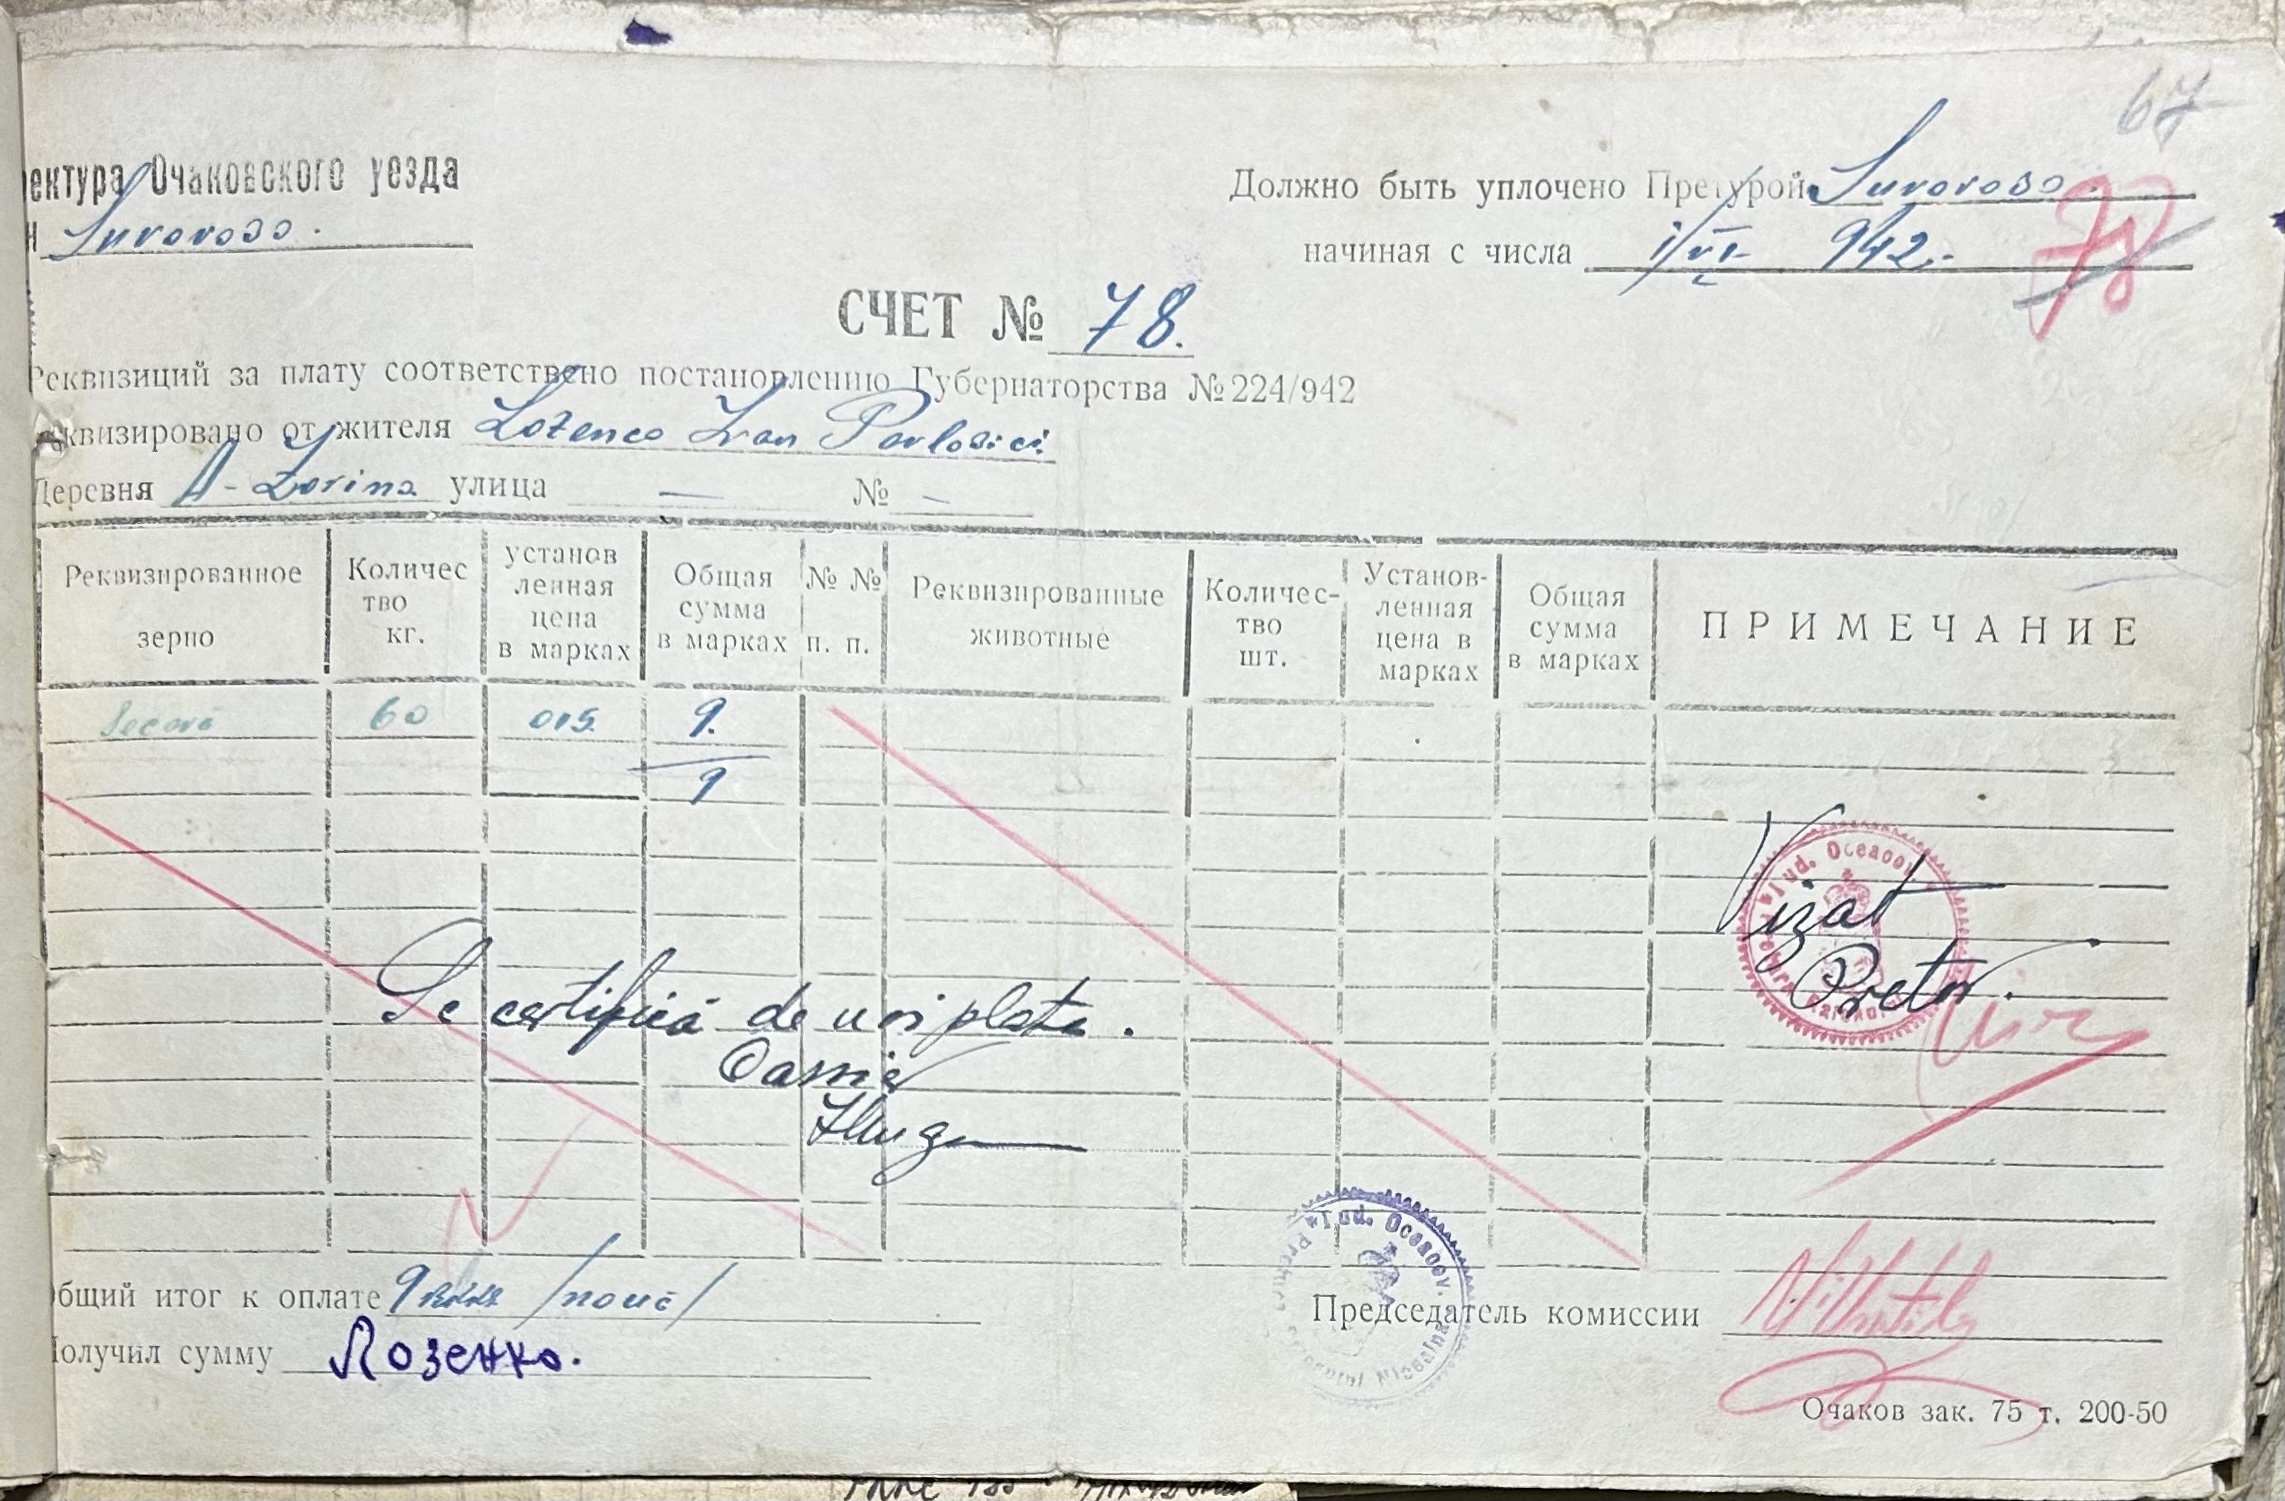 67
ектура Очаковского уезда
н Suvorovo.
Должно быть уплочено Претурой Suvorovo.
начиная с числа 1/VI- 942.-
78
СЧЕТ № 78.
Реквизиций за плату соответствено постановлению Губернаторства № 224/942
квизировано от жителя Lozenco Ivan Pavlovici.
Деревня A-Zorina улица — № -
Реквизированное зерно
Количес тво кг.
установ ленная цена в марках
Общая сумма в марках
№ № п. п.
Реквизированные животные
Количес- тво шт.
Установ- ленная цена в марках
Общая сумма в марках
ПРИМЕЧАНИЕ
Secară 60 015 9.
9
Vizat
Pretor.
Jud. Oceacov
Se certifică de noi plata.
Casier
бщий итог к оплате 9 /nouă/
Получил сумму Лозенко.
Jud. Oceacov.
Председатель комиссии
Очаков зак. 75 т. 200-50